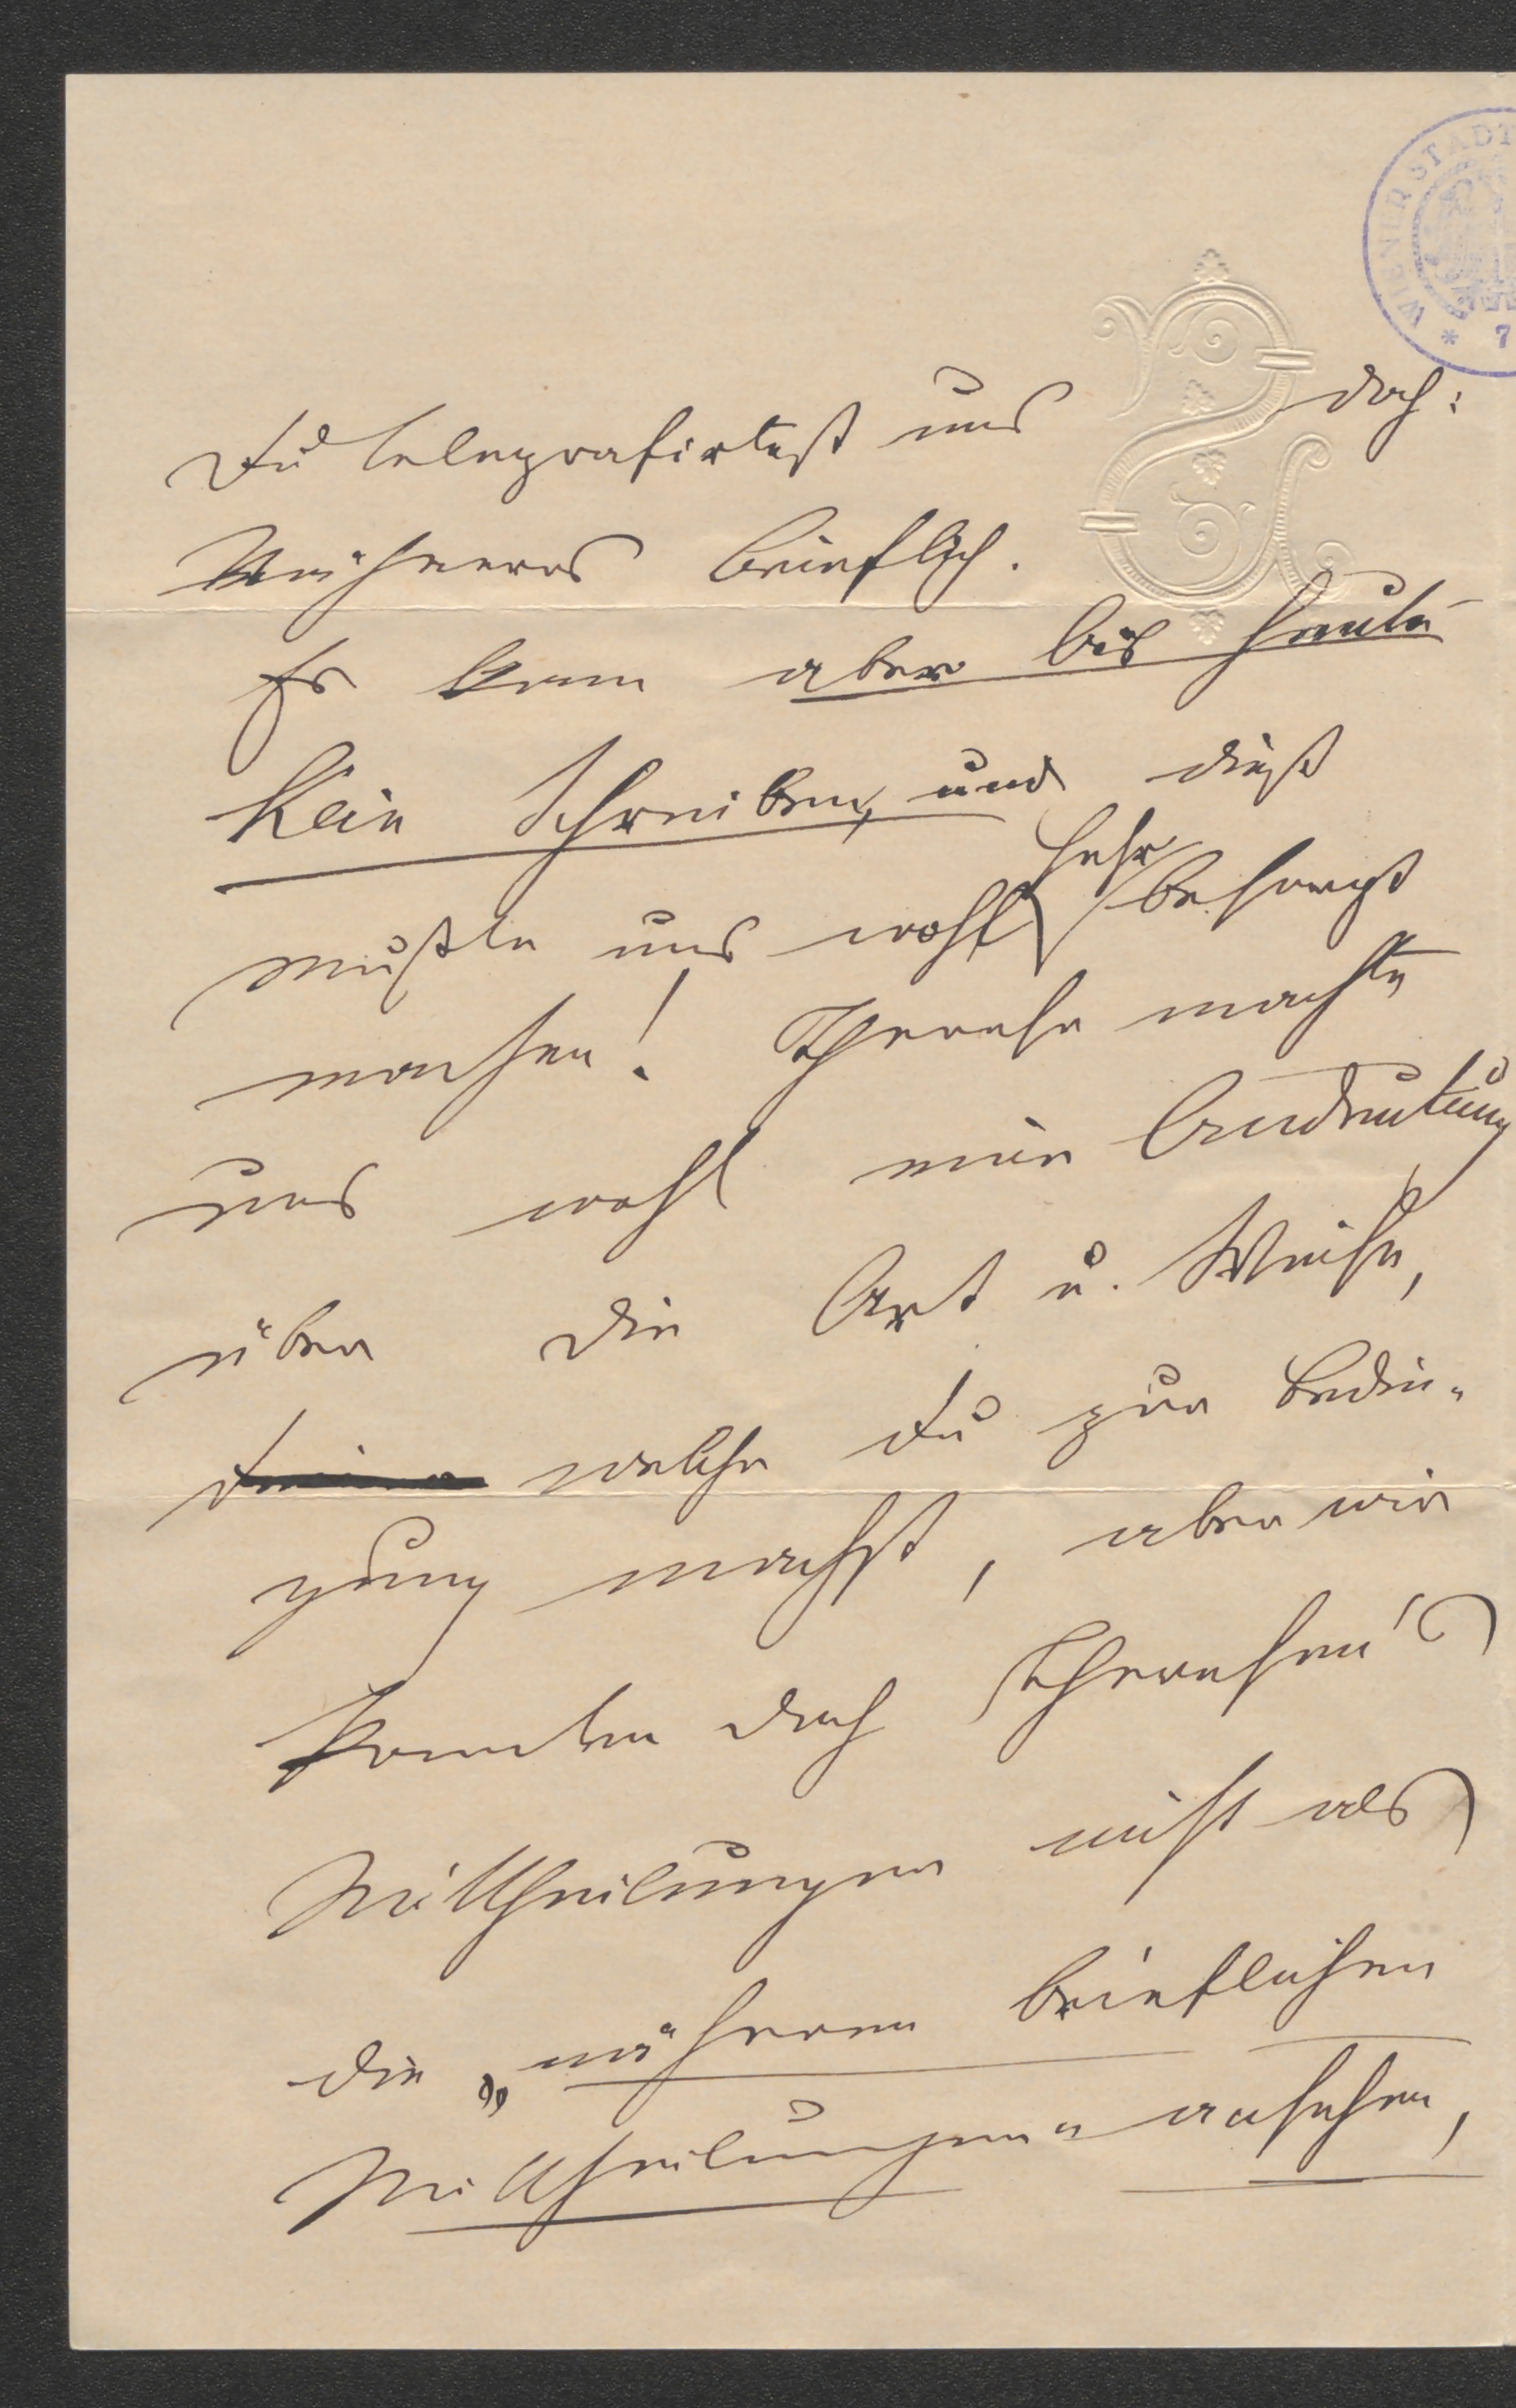 WIENER STADT
* 7
Du telegrafirtest uns doch:
Näheres brieflich.
Es kam aber bis heute
kein Schreiben, und dieß
mußte uns wohl sehr besorgt
machen! Therese machte
uns wohl eine Andeutung
über die Art u. Weise,
welche Du zur Bedin-
gung machst, aber wir
konnten doch Theresen's
Mittheilungen nicht als
die „näheren brieflichen
Mittheilungen" ansehen,